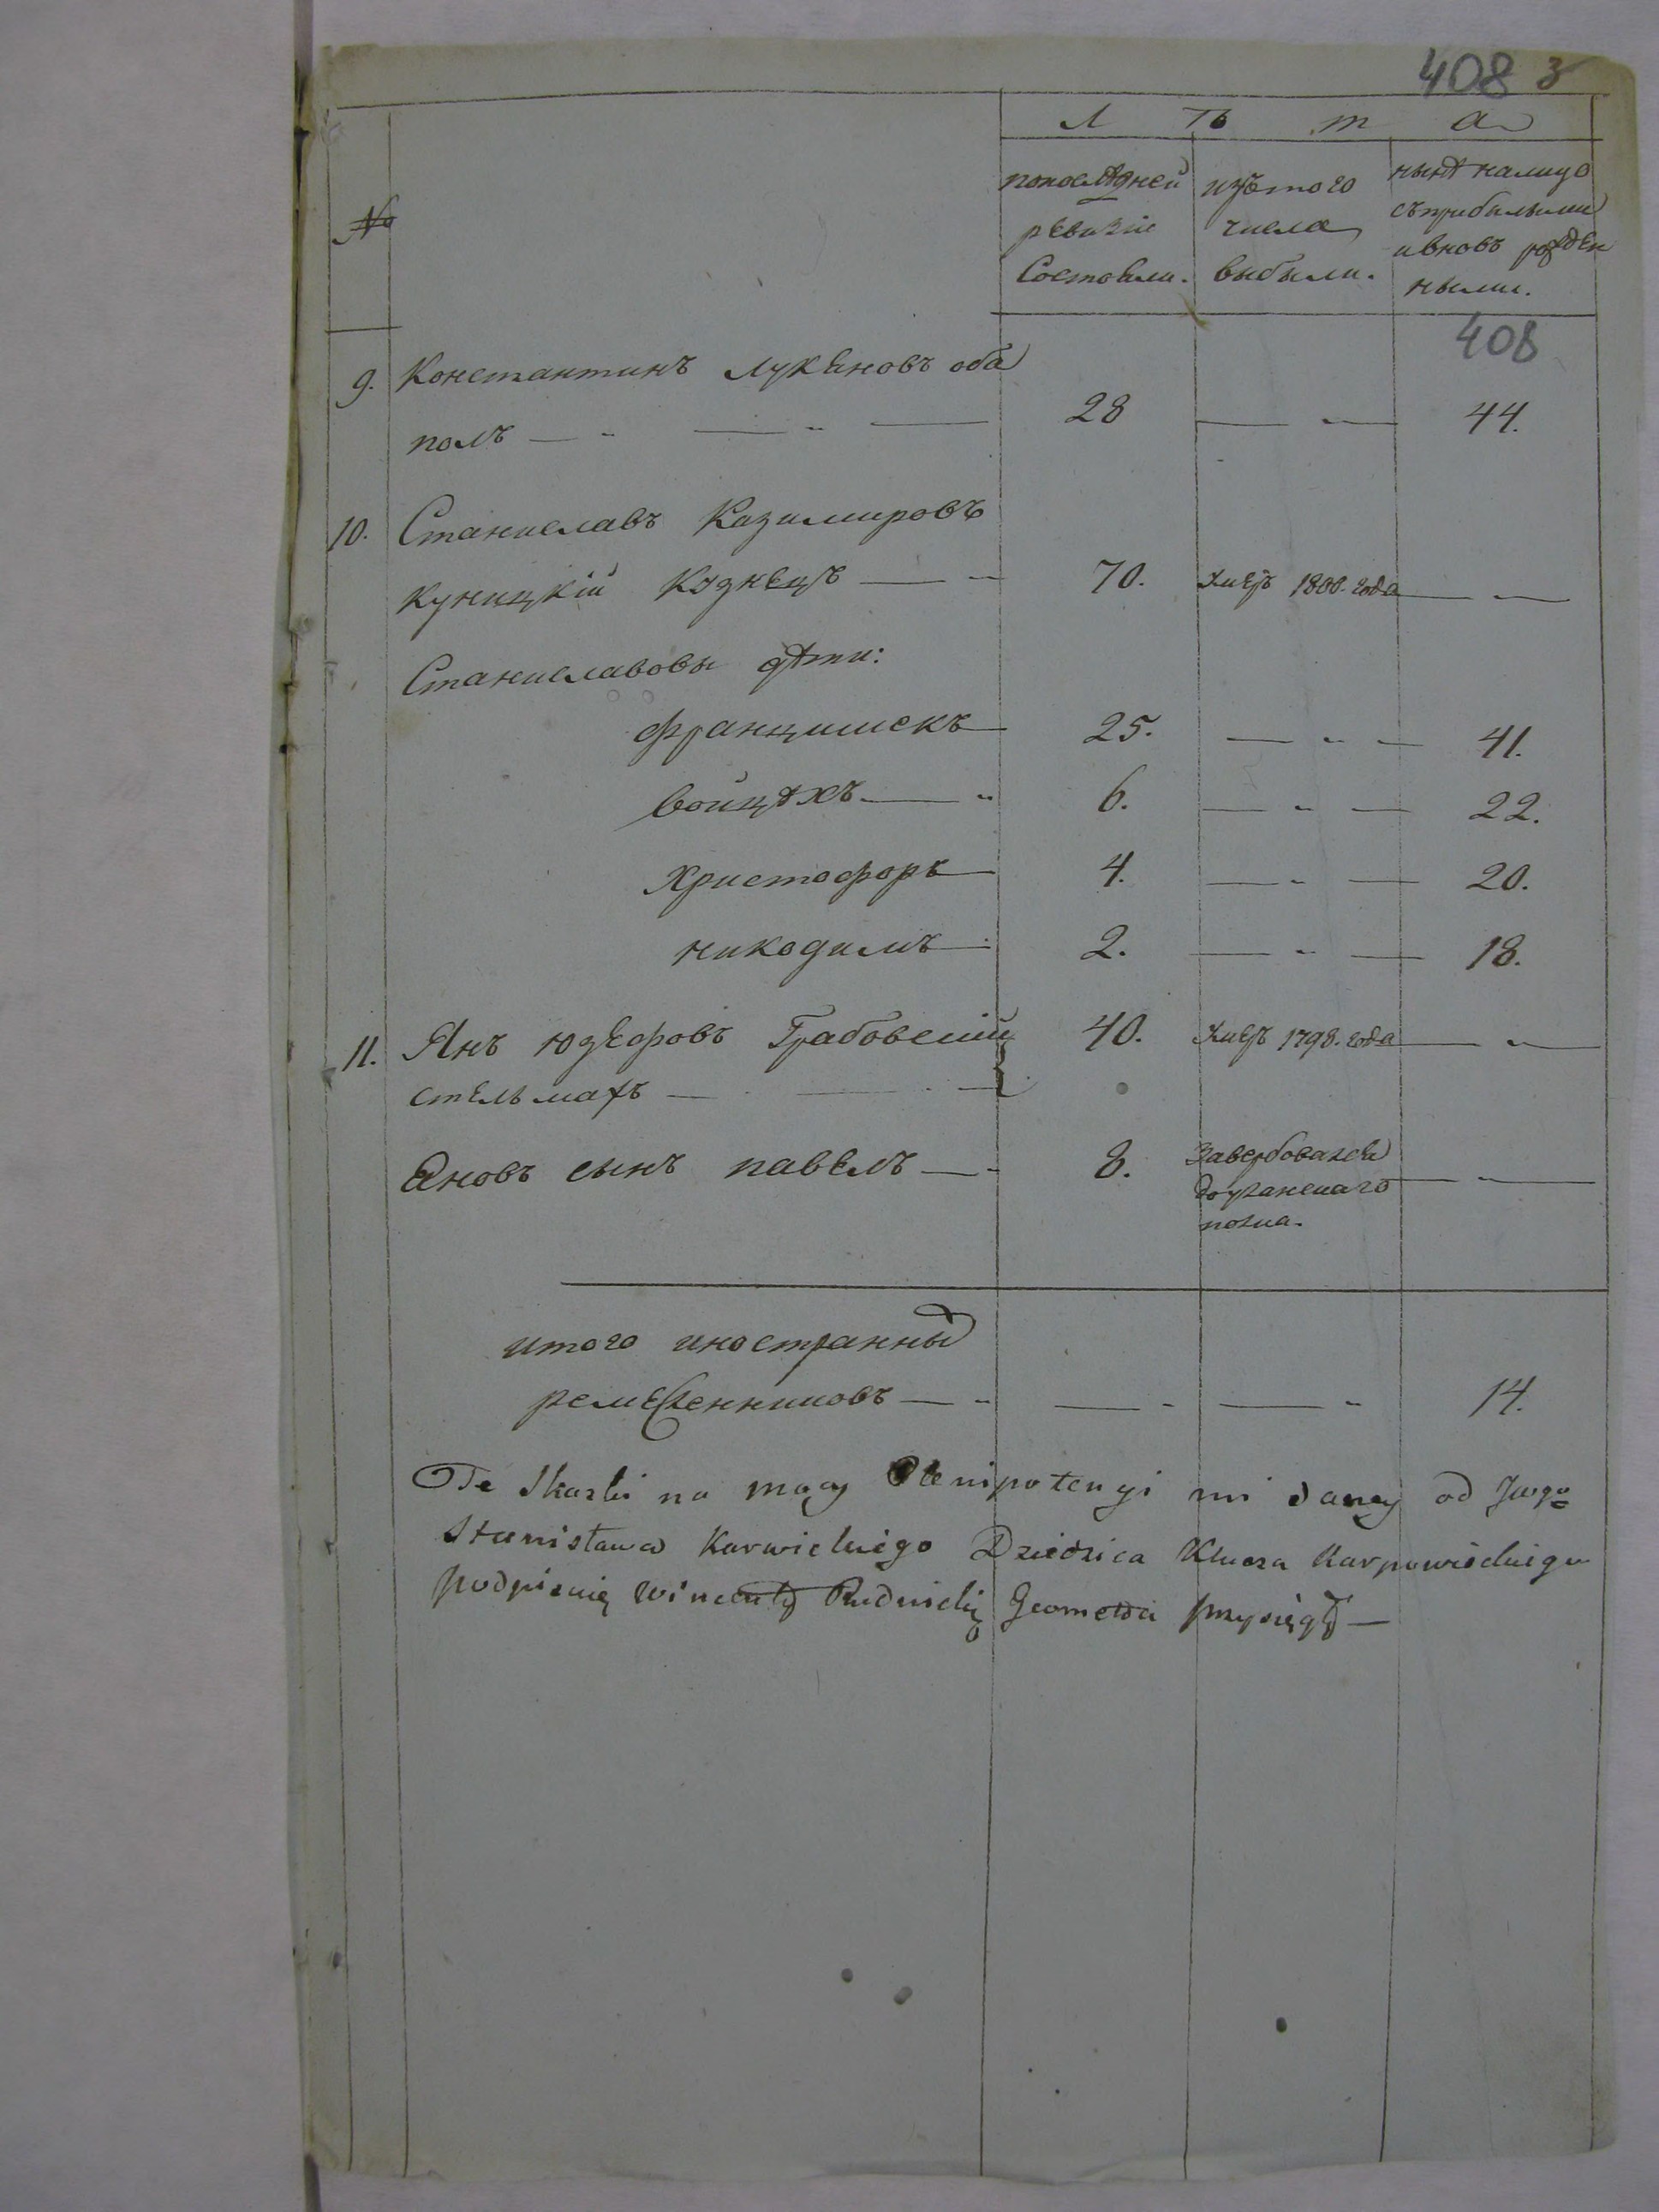 408 3
Л Ѣ т а
№
попослѣдней
ревизіе
Состояли.
изътого
числа
выбыли.
нынѣ налицо
съприбылыми
ивновь рожден
ными.
408
9. Константинъ Лукяновъ оба
полъ — 28 — 44.
10. Станиславъ Казимировъ
куницкій Кузнецъ — 70. Умеръ 1800. года —
Станиславовы дѣти:
францишекъ — 25. — 41.
войцѣхъ — 6. — 22.
Христофоръ — 4. — 20.
никодимъ — 2. — 18.
11. Янъ юзефовъ Грабовский 40. Умеръ 1798. года —
стельмахъ —
Яновъ сынъ павелъ — 8. —
завербовался
доуланскаго
полка.
итого иностранны
ремесленниковъ — 14.
Te Skazki na mocy Plenipotencyi mi daney od Jwgo
Stanisława Karwickiego Dziedzica Klucza Karpowieckiego
podpisuię Wincenty Rudnicki Geometra przysięgły —